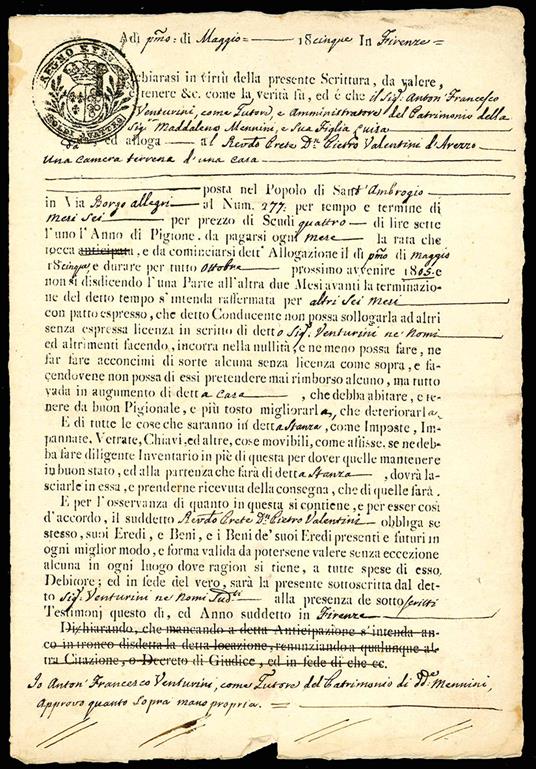 Adi pmo: di Maggio 18cinque In Firenze
REGNO ETRU
SOLDI QUATTRO
chiarasi in virtù della presente Scrittura, da valere,
tenere &c. come la verità fu, ed é che il Sig: Anton Francesco
Venturini, come Tutore, e Amministratore del Patrimonio della
Sig: Maddalena Mennini, e Sua Figlia Luisa
dà, ed alloga al Revdo Prete Dn Pietro Valentini d'Arezzo
una camera terrena d'una casa
posta nel Popolo di Sant' Ambrogio
in Via Borgo allegri al Num. 277: per tempo e termine di
Mesi Sei per prezzo di Scudi quattro di lire sette
l'uno l'Anno di Pigione, da pagarsi ogni Mese la rata che
tocca anticipata, e da cominciarsi dett' Allogazione il dì pmo: di Maggio
18cinque e durare per tutto Ottobre prossimo avvenire 1805. e
non si disdicendo l'una Parte all'altra due Mesi avanti la terminazione
del detto tempo s'intenda raffermata per altri Sei Mesi
con patto espresso, che detto Conducente non possa sollogarla ad altri
senza espressa licenza in scritto di detto Sig: Venturini ne Nomi
ed altrimenti facendo, incorra nella nullità, e ne meno possa fare, ne
far fare acconcimi di sorte alcuna senza licenza come sopra, e fa-
cendovene non possa di essi pretendere mai rimborso alcuno, ma tutto
vada in augumento di detta casa, che debba abitare, e te-
nere da buon Pigionale, e più tosto migliorarla, che deteriorarla.
E di tutte le cose che saranno in detta Stanza, come Imposte, Im-
pannate, Vetrate, Chiavi, ed altre, cose movibili, come affisse, se ne deb-
ba fare diligente Inventario in piè di questa per dover quelle mantenere
in buon stato, ed alla partenza che farà di detta Stanza, dovrà la-
sciarle in essa, e prenderne ricevuta della consegna, che di quelle farà.
E per l'osservanza di quanto in questa si contiene, e per esser così
d'accordo, il suddetto Revdo Prete Dn Pietro Valentini obbliga se
stesso, suoi Eredi, e Beni, e i Beni de' suoi Eredi presenti e futuri in
ogni miglior modo, e forma valida da potersene valere senza eccezione
alcuna in ogni luogo dove ragion si tiene, a tutte spese di esso
Debitore; ed in fede del vero, sarà la presente sottoscritta dal det-
to Sig: Venturini ne Nomi Sudti alla presenza de sottoscritti
Testimonj questo dì, ed Anno suddetto in Firenze
Dichiarando, che mancando a detta Anticipazione s'intenda an-
co in tronco disdetta la detta locazione, renunziando a qualunque al-
tra Citazione, o Decreto di Giudice, ed in fede di che ec.
Io Anton' Francesco Venturini, come Tutore del Patrimonio di Da Mennini,
Approvo quanto Sopra mano propria.